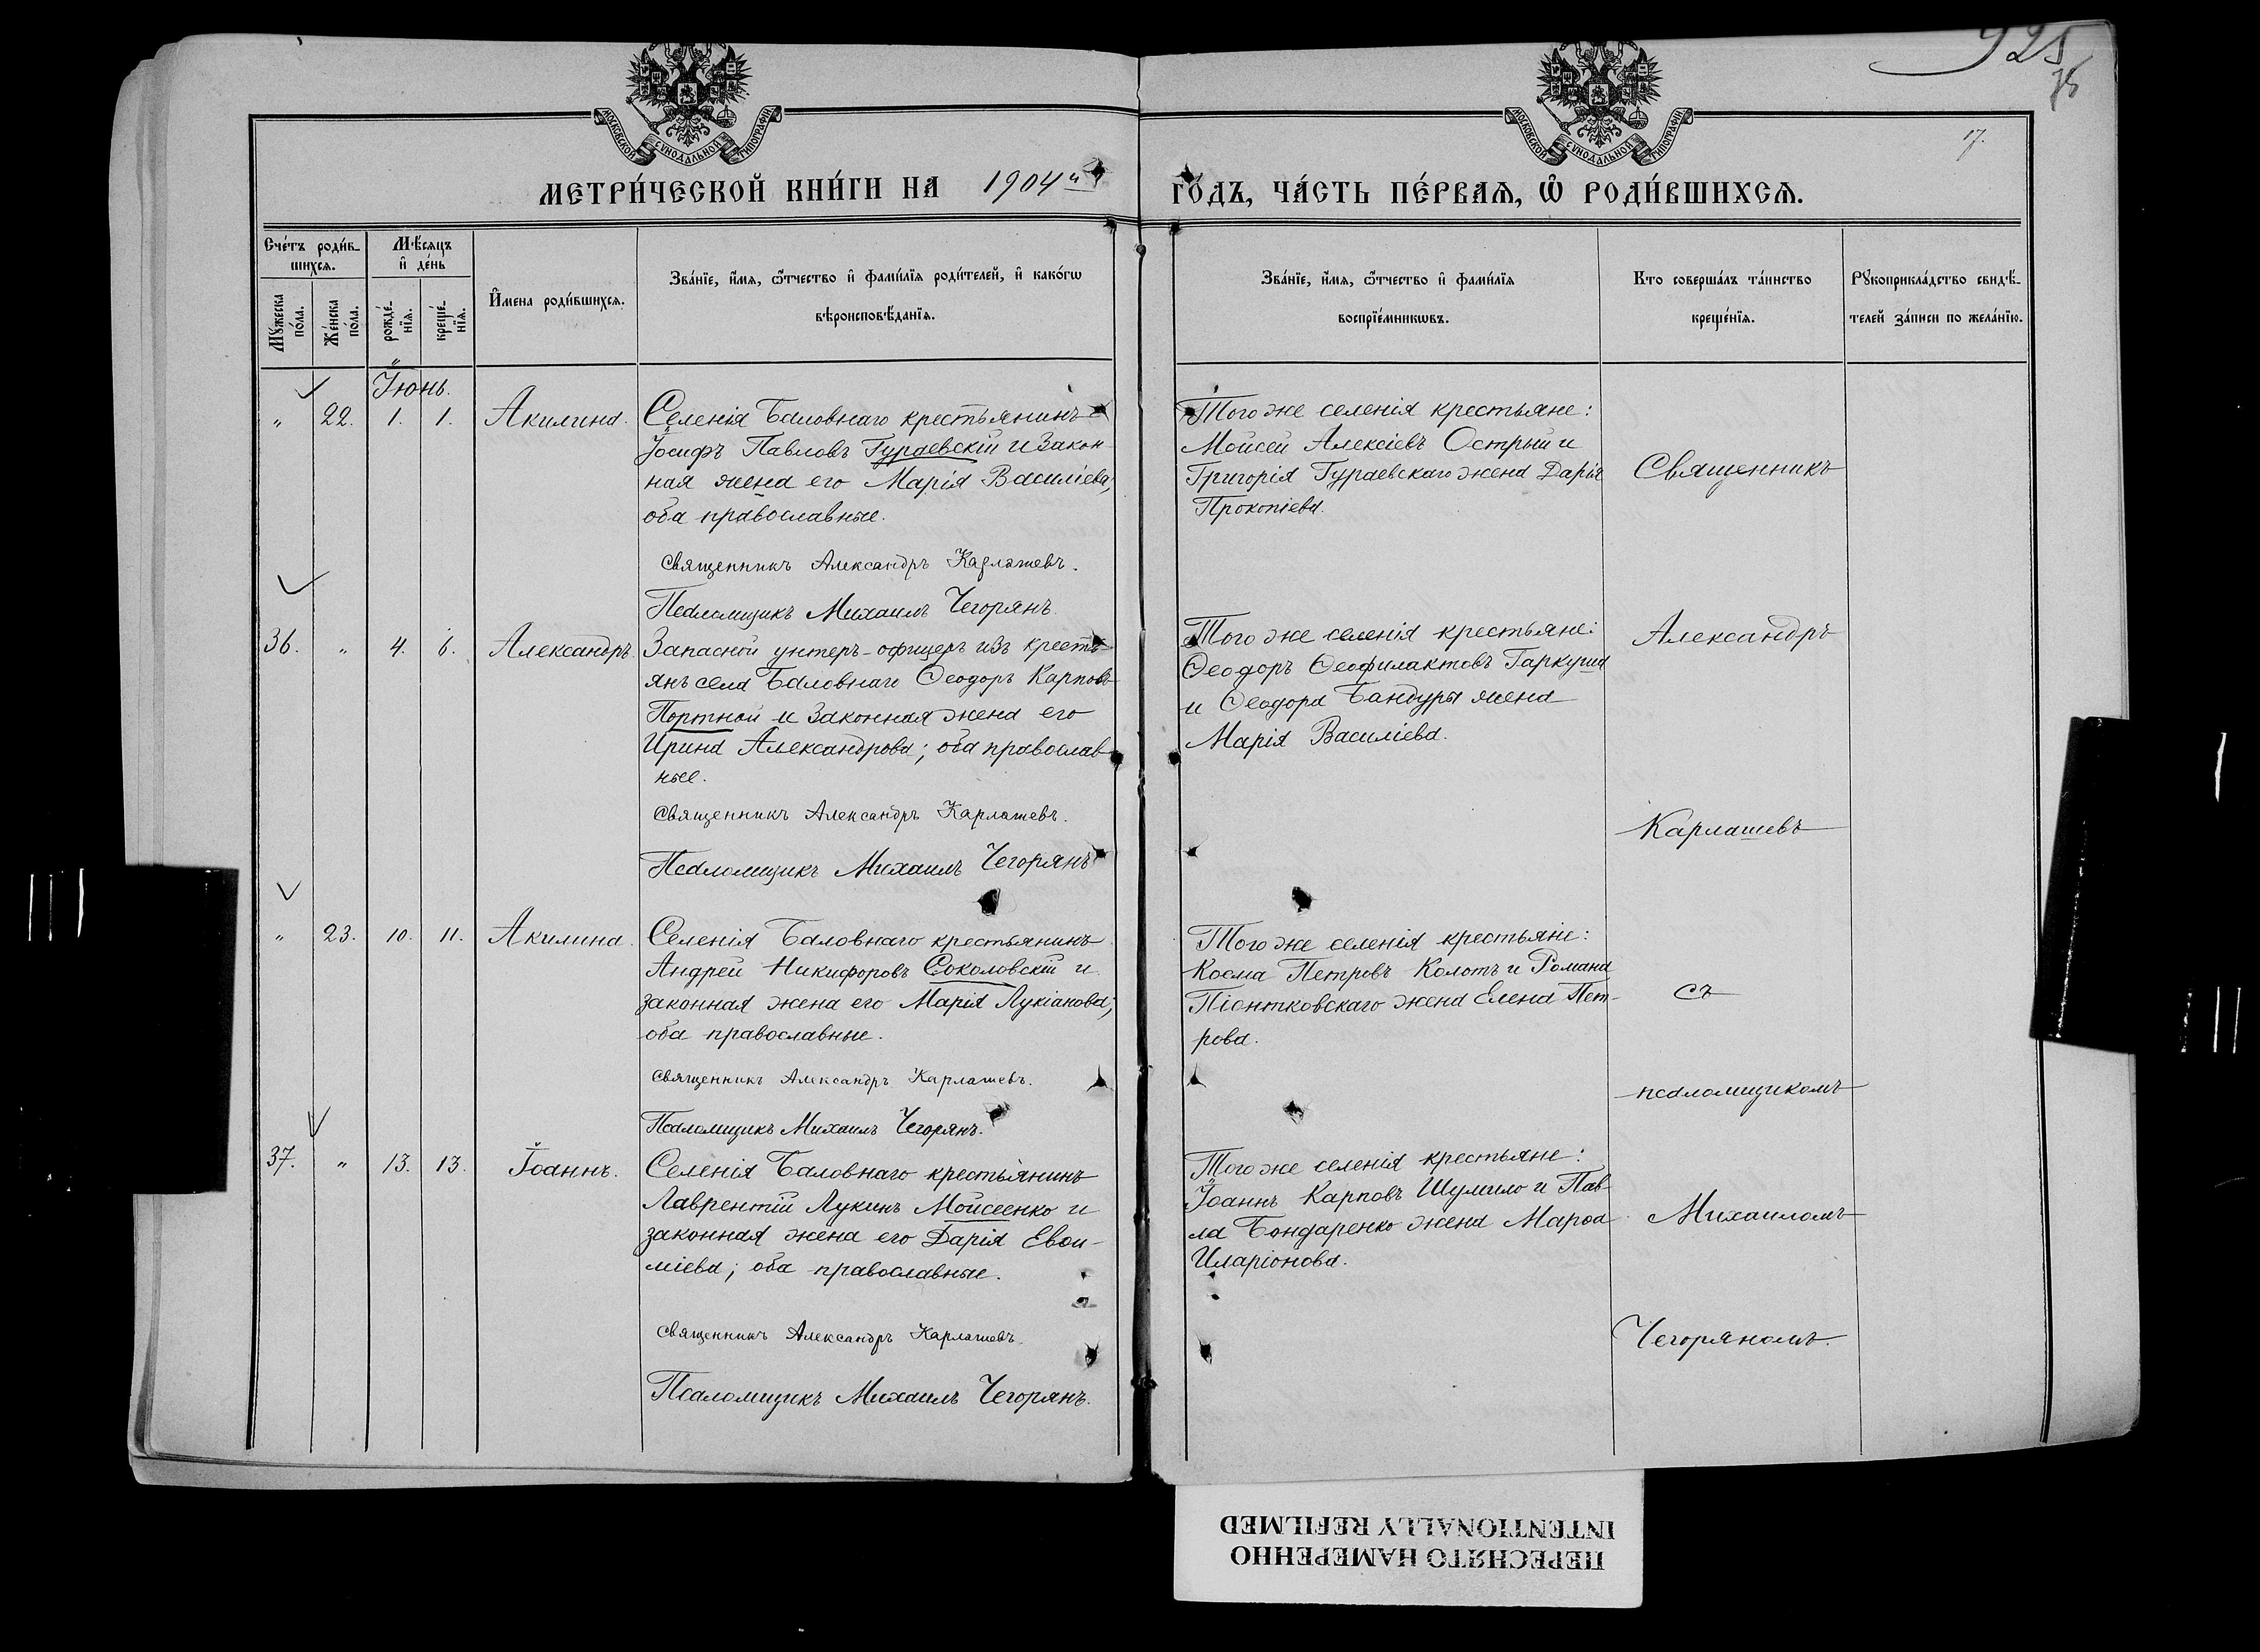 925
75
17.
МОСКОВСКОЙ СУНОДАЛЬНОЙ ТИПОГРАФІИ
МОСКОВСКОЙ СУНОДАЛЬНОЙ ТИПОГРАФІИ
МЕТРИ́ЧЕСКОЙ КНИ́ГИ НА 1904й
ГО́ДЪ, ЧА́СТЬ ПЕ́РВАѦ, Ѡ РОДИ́ВШИХСѦ.
Сче́тъ роди́в-
шихсѧ.
Мꙋ́жеска
по́ла.
Же́нска
по́ла.
Мѣ́сѧцъ
и҆ де́нь
рожде́-
нїѧ.
креще́-
нїѧ.
И҆мена роди́вшихсѧ.
Зва́нїе, и҆́мѧ, ѻ҆́тчество и҆ фами́лїѧ роди́телей, и҆ како́гѡ
вѣроисповѣ́данїѧ.
Зва́нїе, и҆́мѧ, ѻ҆́тчество и҆ фами́лїѧ
воспрїе́мникѡвъ.
Кто соверша́лъ та́инство
креще́нїѧ.
Рꙋкоприкла́дство свидѣ́-
телей за́писи по жела́нїю.
Іюнь.
" 22. 1. 1. Акилина.
Селенія Баловнаго крестьянинъ
Іосифъ Павловъ Гураевскій и закон-
ная жена его Марія Василіева,
оба православные.
Священникъ Александръ Карлашевъ.
Псаломщикъ Михаилъ Чегорянъ.
Того же селенія крестьяне:
Мойсей Алексіевъ Острый и
Григорія Гураевскаго жена Дарія
Прокопіева.
36. " 4. 6. Александръ.
Запасной унтеръ-офицеръ изъ кресть-
янъ села Баловнаго Ѳеодоръ Карповъ
Портной и законная жена его
Ирина Александрова; оба православ-
ные.
Священникъ Александръ Карлашевъ.
Псаломщикъ Михаилъ Чегорянъ
Того же селенія крестьяне:
Ѳеодоръ Ѳеофилактовъ Гаркуша
и Ѳеодора Бандуры жена
Марія Василіева.
" 23. 10. 11. Акилина.
Селенія Баловнаго крестьянинъ
Андрей Никифоровъ Соколовскій и
законная жена его Марія Лукіанова;
оба православные.
Священникъ Александръ Карлашевъ.
Псаломщикъ Михаилъ Чегорянъ.
Того же селенія крестьяне:
Косма Петровъ Колотъ и Романа
Піонтковскаго жена Елена Пет-
рова.
37. " 13. 13. Іоаннъ.
Селенія Баловнаго крестьянинъ
Лаврентій Лукинъ Мойсеенко и
законная жена его Дарія Евѳи-
міева; оба православные.
Священникъ Александръ Карлашевъ.
Псаломщикъ Михаилъ Чегорянъ.
Того же селенія крестьяне:
Іоаннъ Карповъ Шумило и Пав-
ла Бондаренко жена Марѳа
Иларіонова.
Священникъ
Александръ
Карлашевъ
съ
псаломщикомъ
Михаиломъ
Чегоряномъ.
ПЕРЕСНЯТО НАМЕРЕННО
INTENTIONALLY REFILMED